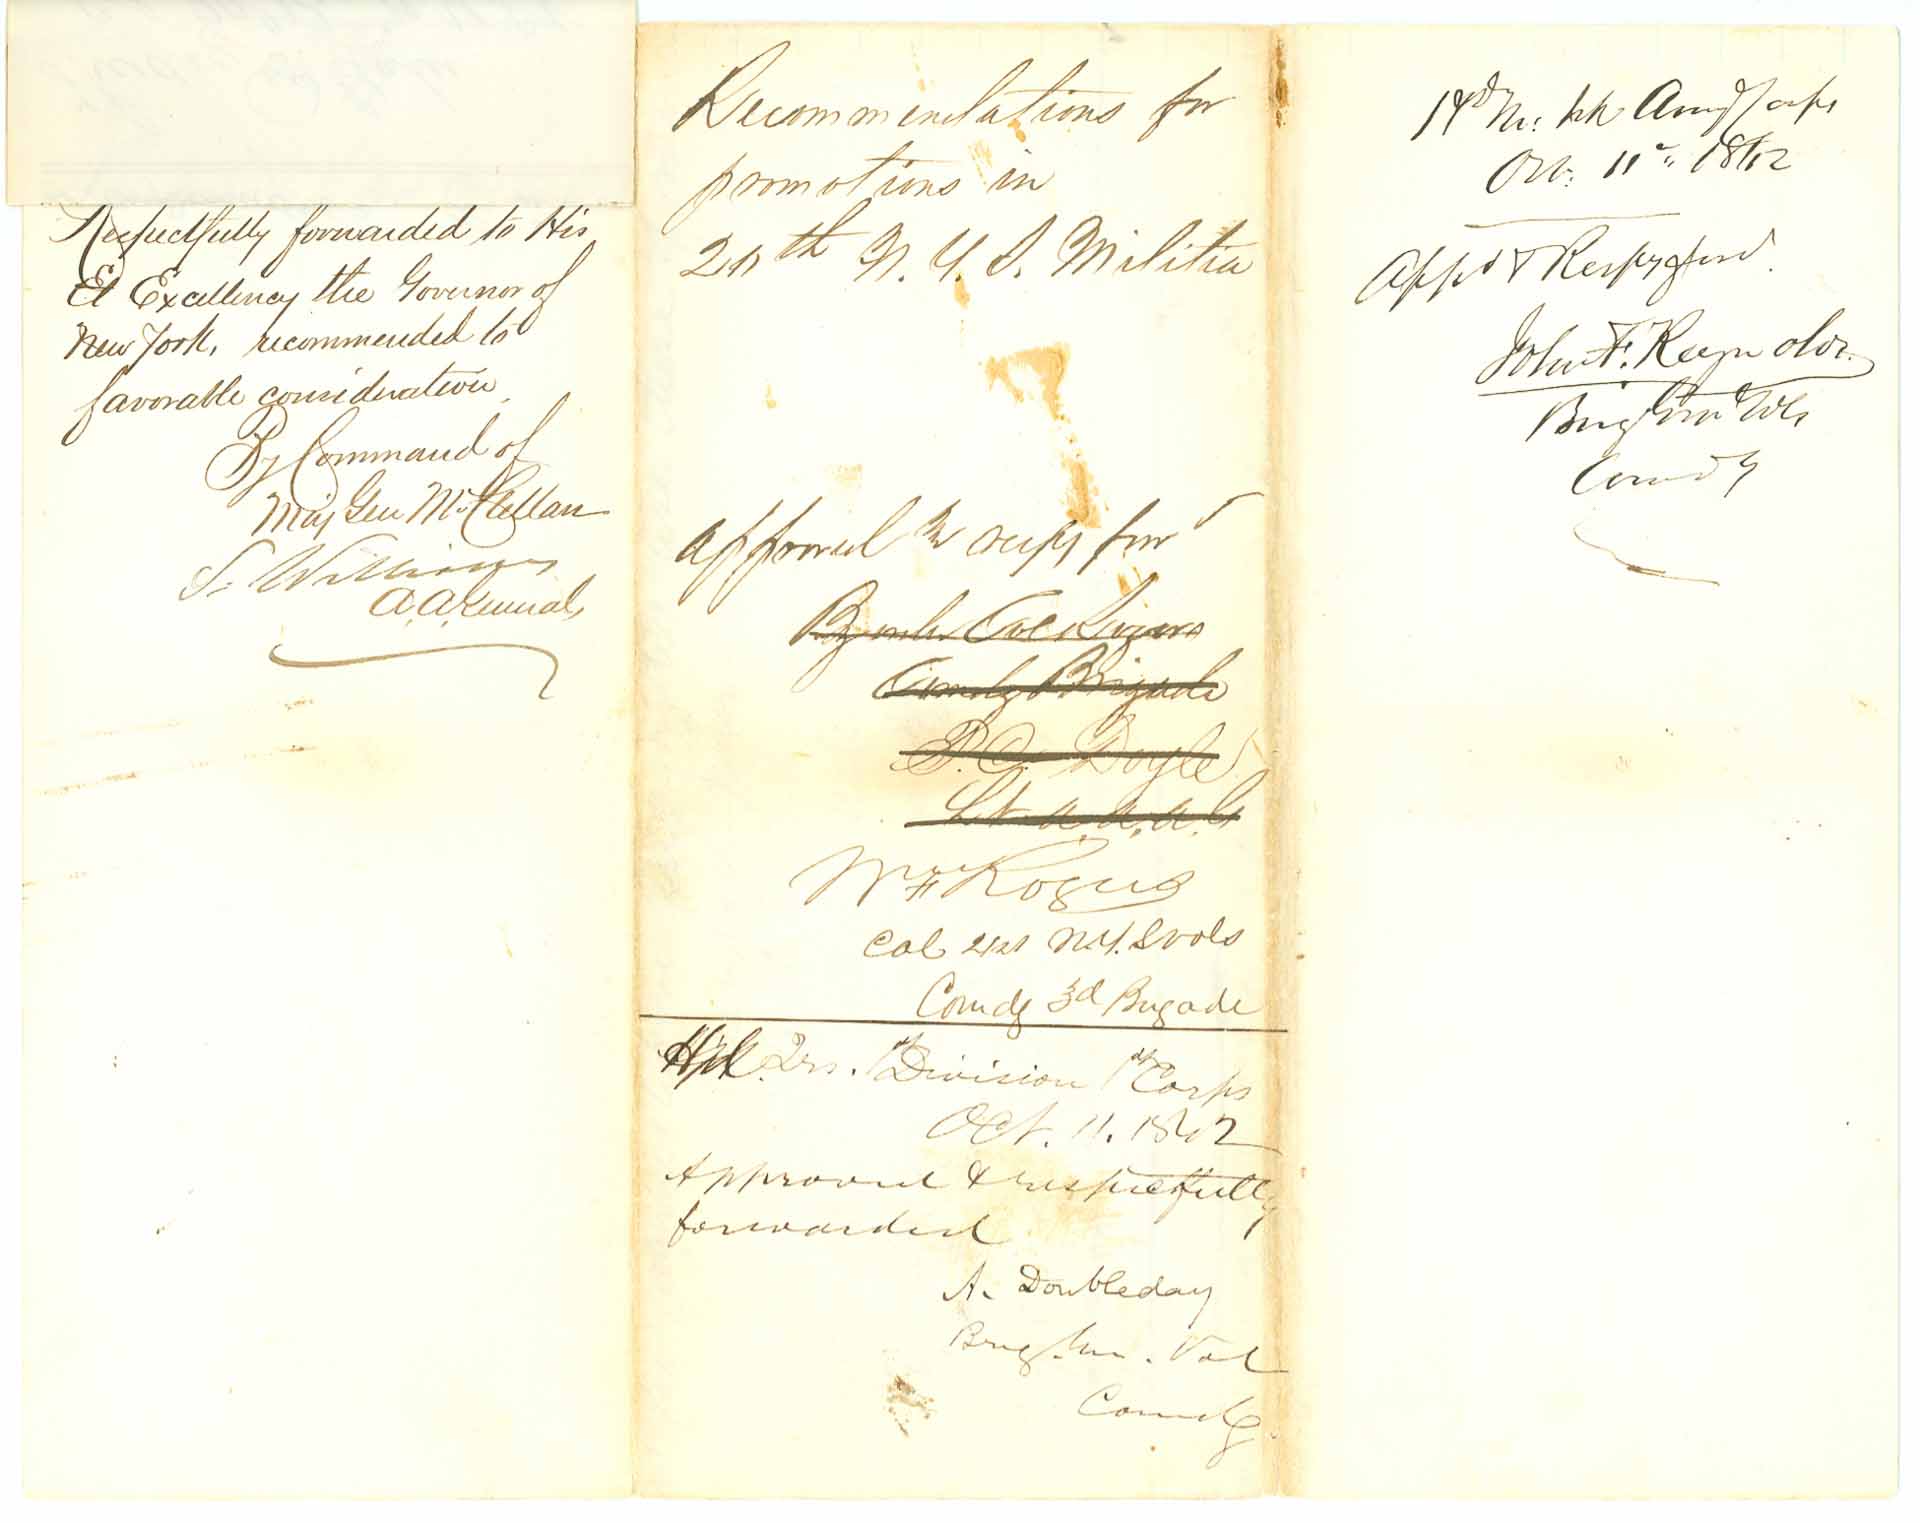 Respectfully forwarded to His
Excellency the Governor of
New York, recommended to
favorable consideration.
By Command of
Maj Gen McClellan
S. Williams
A. A. General
Recommendations for
promotions in
20th N. Y. S. Militia
approved & respy forwd
By order Col Rogers
Comdg Brigade
P. C. Doyle
Lt. a. a. a. G
Wm F Rogers
Col 21st N.Y.S vols
Comdg 3d Brigade
Hd. Qrs. 1st Division 1st Corps
Oct. 11. 1862
Approved & respectfully
forwarded
A. Doubleday
Brig. Gen. Vol
Comdg.
Army Corps
Oct. 11th 1862
Appd & Respy ford.
John F. Reynolds
Brig Gen Vols
Comdg